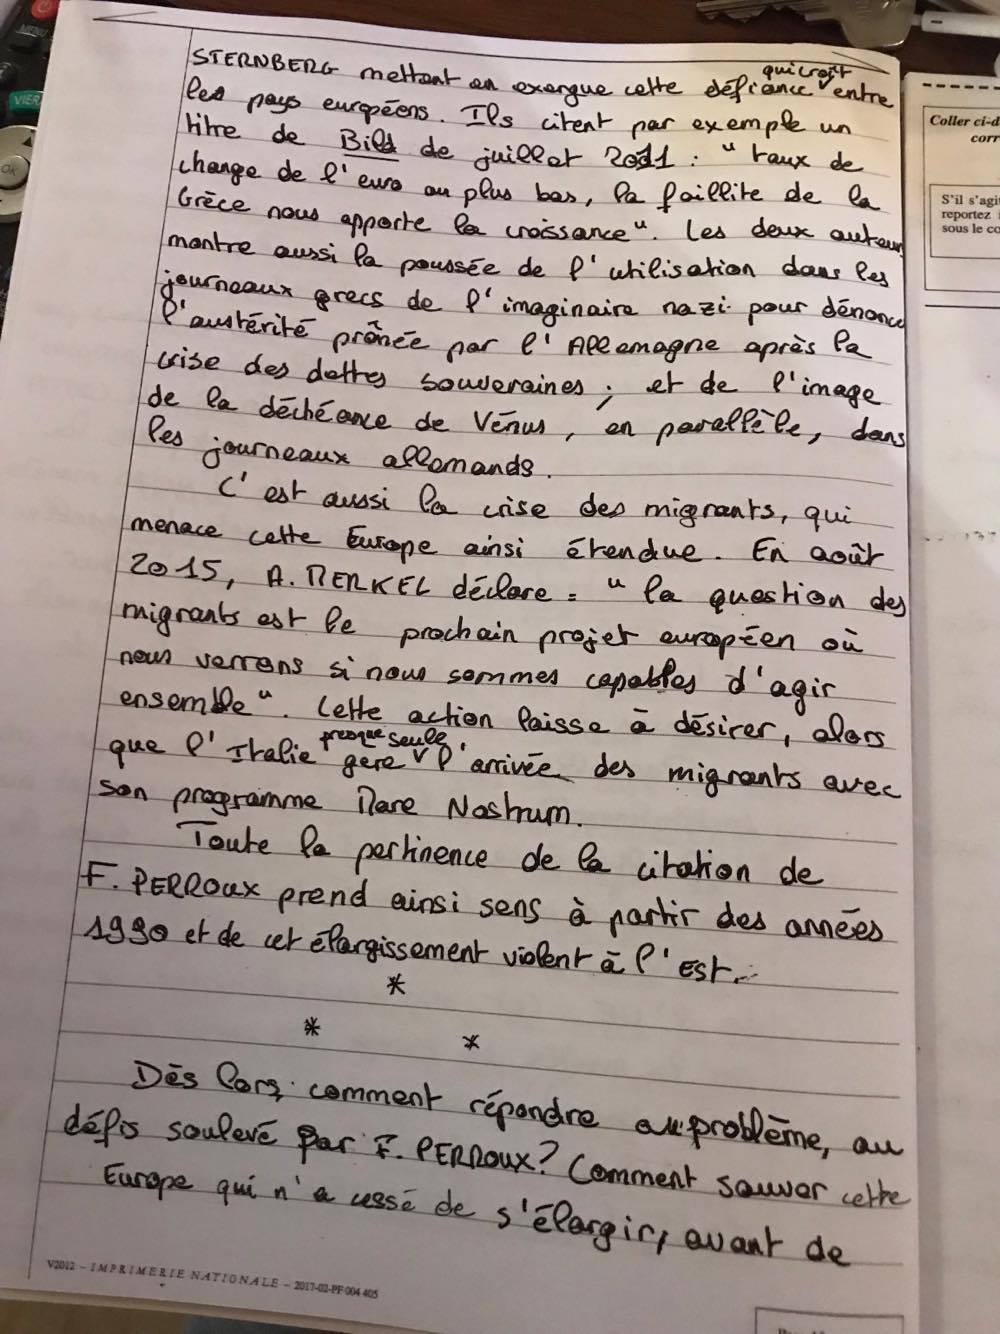 STERNBERG mettant en exergue cette défiance qui croît entre
les pays européens. Ils citent par exemple un
titre de Bild de juillet 2011 : "taux de
change de l'euro au plus bas, la faillite de la
Grèce nous apporte la croissance". Les deux auteurs
montre aussi la poussée de l'utilisation dans les
journeaux grecs de l'imaginaire nazi pour dénoncer
l'austérité prônée par l'Allemagne après la
crise des dettes souveraines ; et de l'image
de la déchéance de Vénus, en parallèle, dans
les journeaux allemands.
C'est aussi la crise des migrants, qui
menace cette Europe ainsi étendue. En août
2015, A. MERKEL déclare : "la question des
migrants est le prochain projet européen où
nous verrons si nous sommes capables d'agir
ensemble". Cette action laisse à désirer, alors
que l'Italie gère presque seule l'arrivée des migrants avec
son programme Mare Nostrum.
Toute la pertinence de la citation de
F. PERROUX prend ainsi sens à partir des années
1990 et de cet élargissement violent à l'Est.
*
* *
Dès lors, comment répondre au problème, au
défis soulevé par F. PERROUX ? Comment sauver cette
Europe qui n'a cessé de s'élargir, avant de
V2012 – IMPRIMERIE NATIONALE – 2017-02-PF 004 405
Coller ci-d
corr
S'il s'agi
reportez
sous le co
MENU
OK